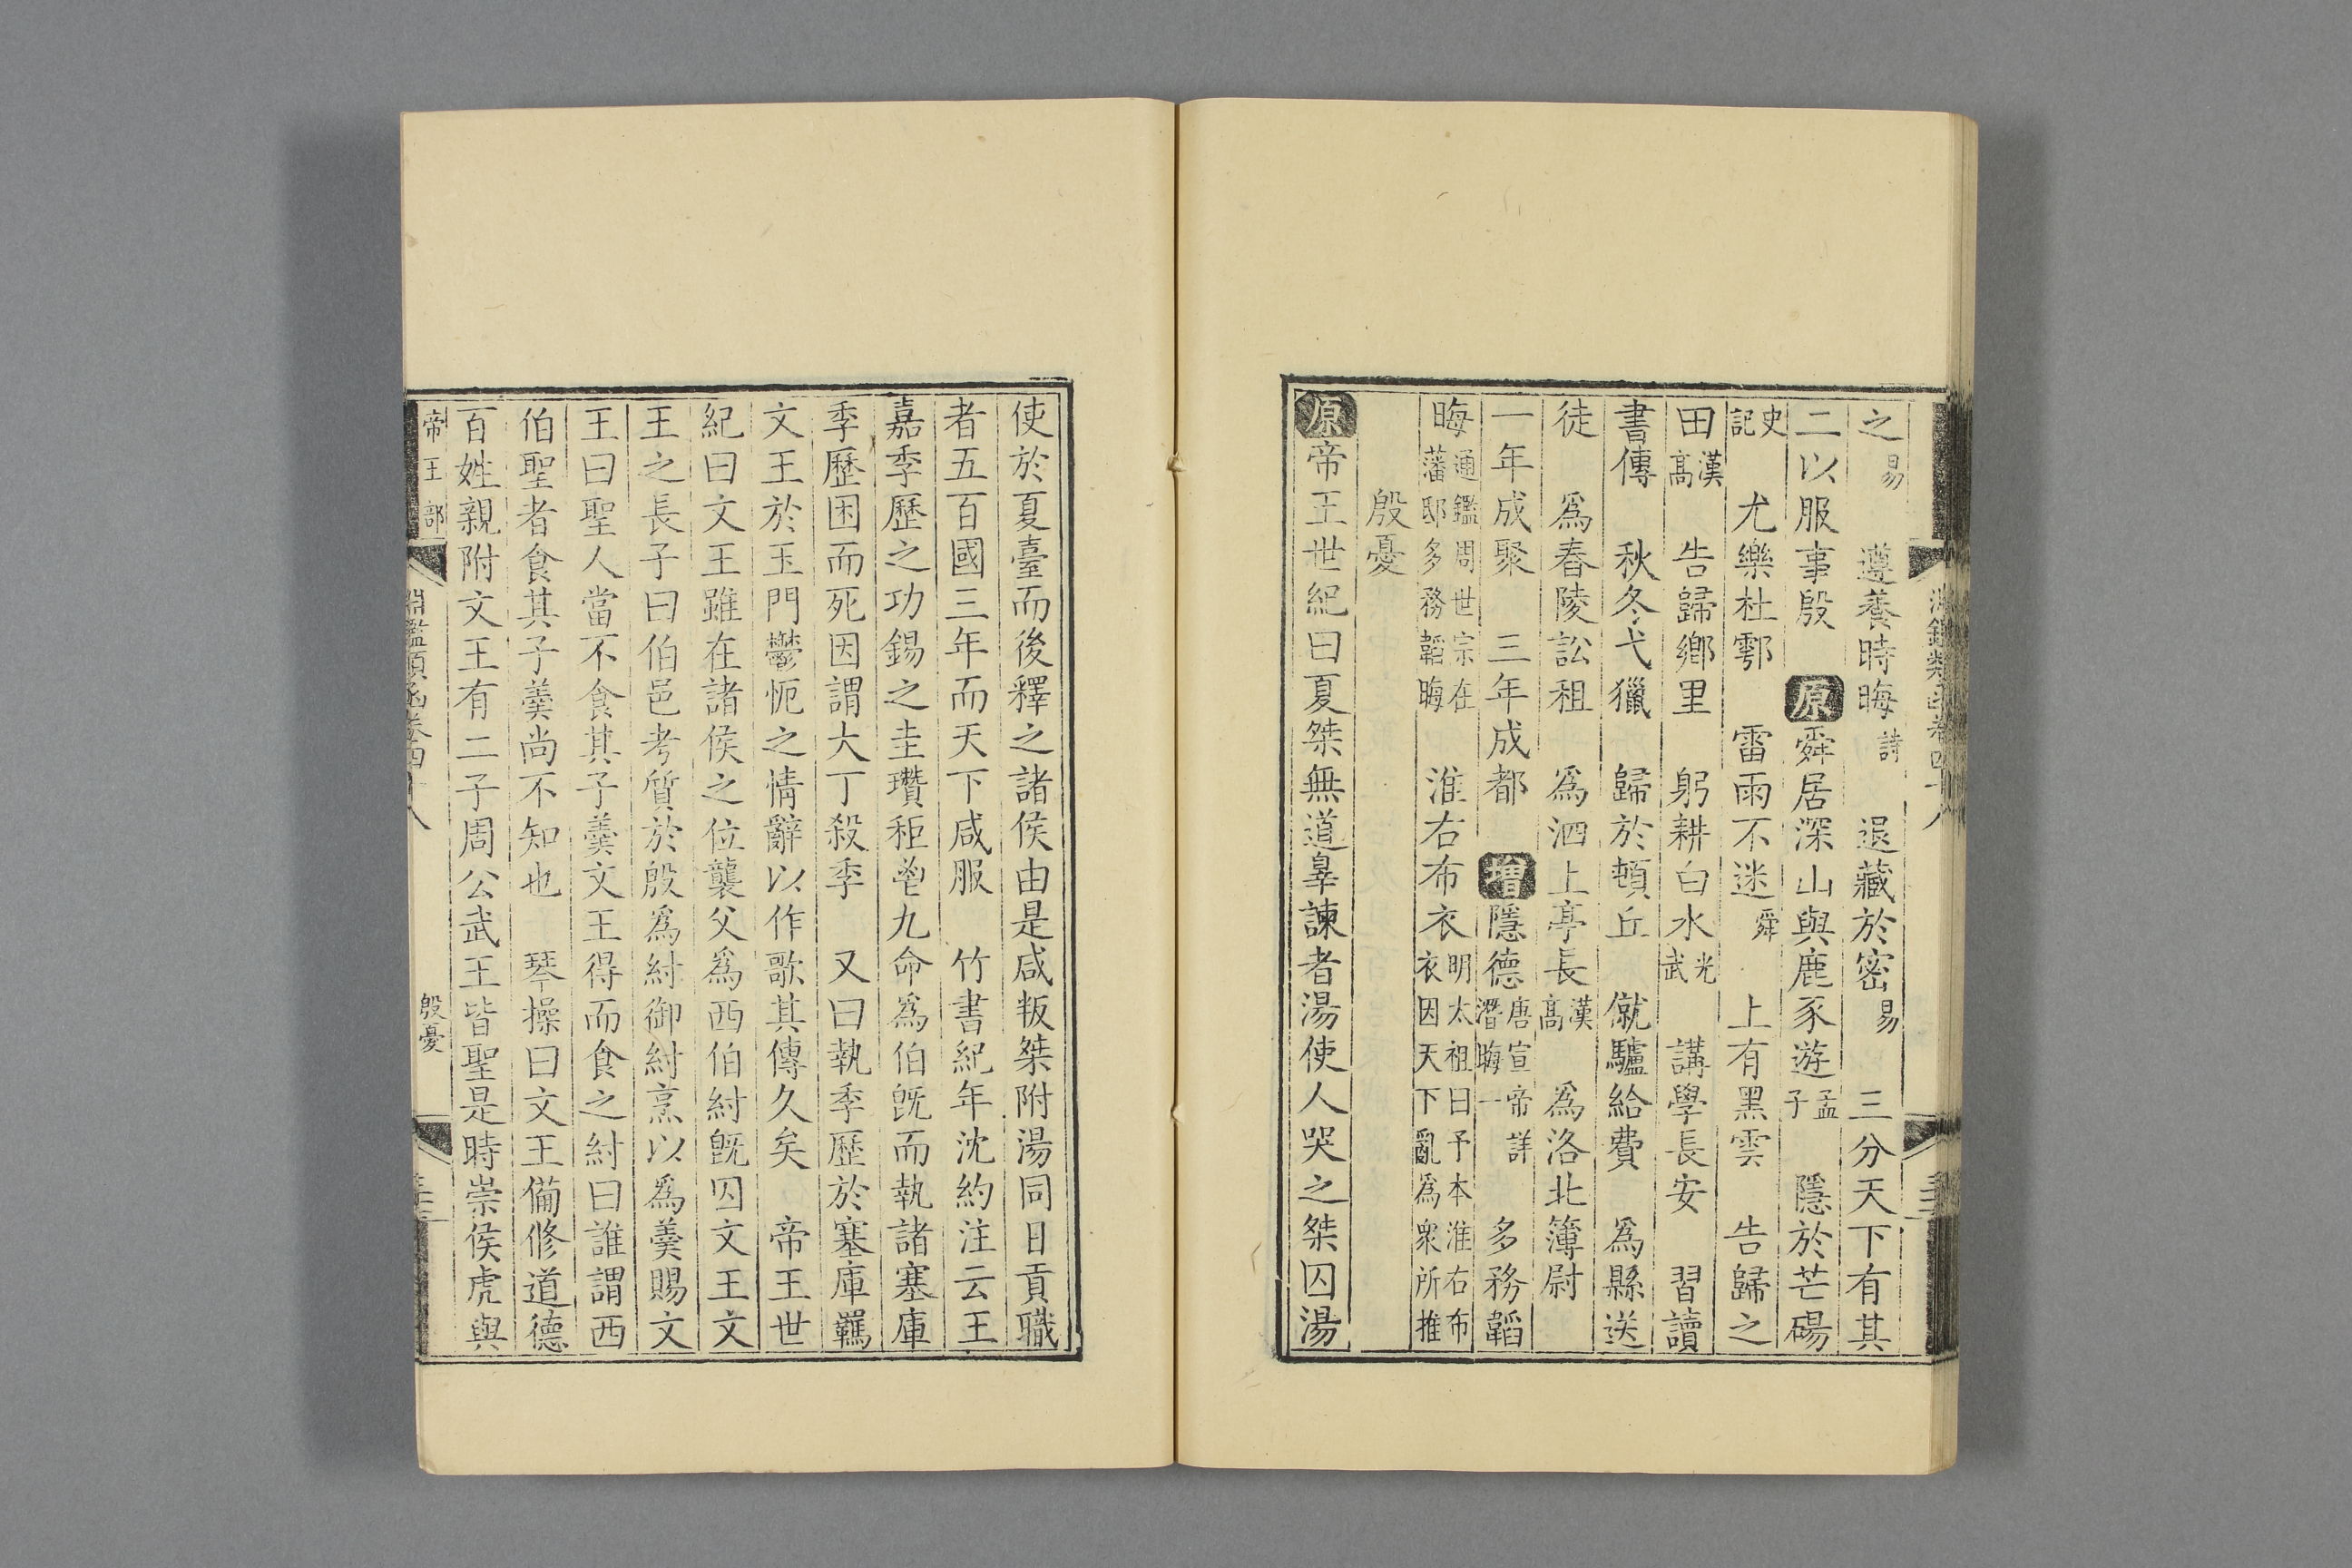 之易　遵養時晦詩　退藏於密易　三分天下有其
二以服事殷　原舜居深山與鹿豕遊孟子　隱於芒碭
史記　尤樂杜鄠　雷雨不迷舜　上有黑雲　告歸之
田漢高　告歸鄉里　躬耕白水光武　講學長安　習讀
書傳　秋冬弋獵　歸於頓丘　僦驢給費　爲縣送
徒　爲舂陵訟租　爲泗上亭長漢高　爲洛北簿尉
一年成聚　三年成都　增隱德唐宣帝詳潛晦一　多務韜
晦通鑑周世宗在藩邸多務韜晦　淮右布衣明太祖曰予本淮右布衣因天下亂爲衆所推
殷憂
原帝王世紀曰夏桀無道辠諫者湯使人哭之桀囚湯
使於夏臺而後釋之諸侯由是咸叛桀附湯同日貢職
者五百國三年而天下咸服　竹書紀年沈約注云王
嘉季歷之功錫之圭瓚秬鬯九命爲伯旣而執諸塞庫
季歷困而死因謂大丁殺季　又曰執季歷於塞庫羈
文王於玉門鬱怌之情辭以作歌其傳久矣　帝王世
紀曰文王雖在諸侯之位襲父爲西伯紂旣囚文王文
王之長子曰伯邑考質於殷爲紂御紂烹以爲羹賜文
王曰聖人當不食其子羹文王得而食之紂曰誰謂西
伯聖者食其子羹尚不知也　琴操曰文王備修道德
百姓親附文王有二子周公武王皆聖是時崇侯虎與
帝王部　淵鑑類函卷四十八　殷憂